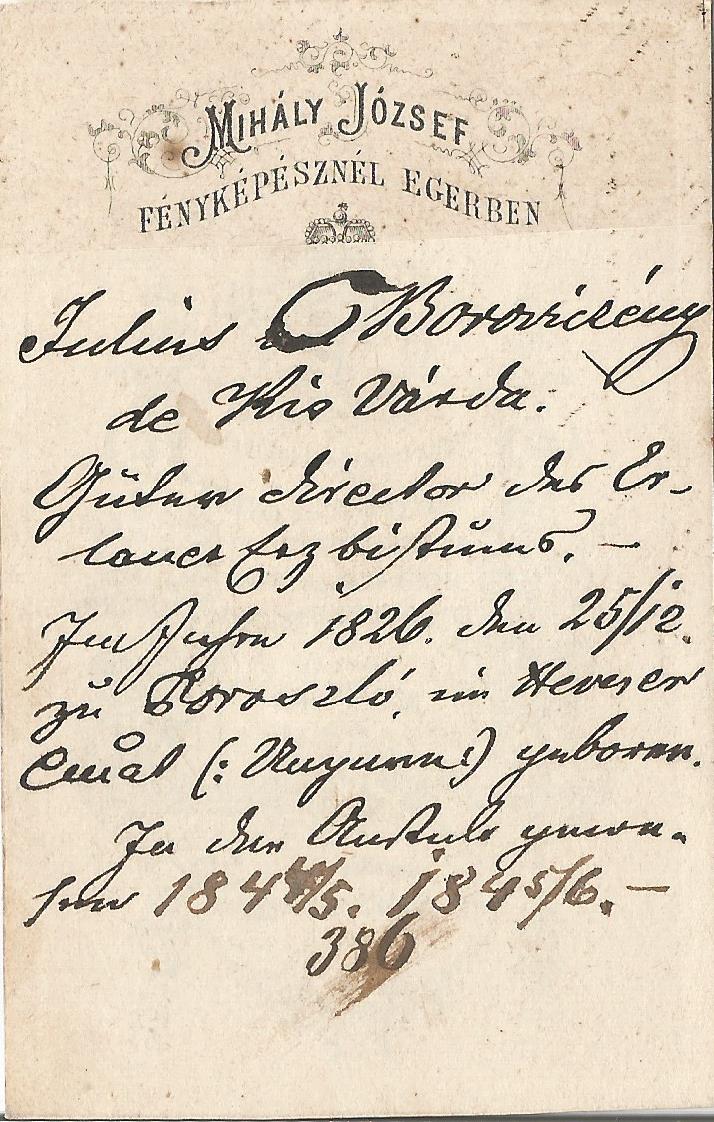 MIHÁLY JÓZSEF
FÉNYKÉPÉSZNÉL EGERBEN
Julius Boroviczény
de Kis Várda.
Güter director des Er-
lauer Erzbistums. —
Im Jahre 1826. den 25/12.
zu Poroszló, im Heveser
Comitat (: Ungarn :) geboren.
In der Anstalt gewe-
sen 1844/5. 1845/6. —
386